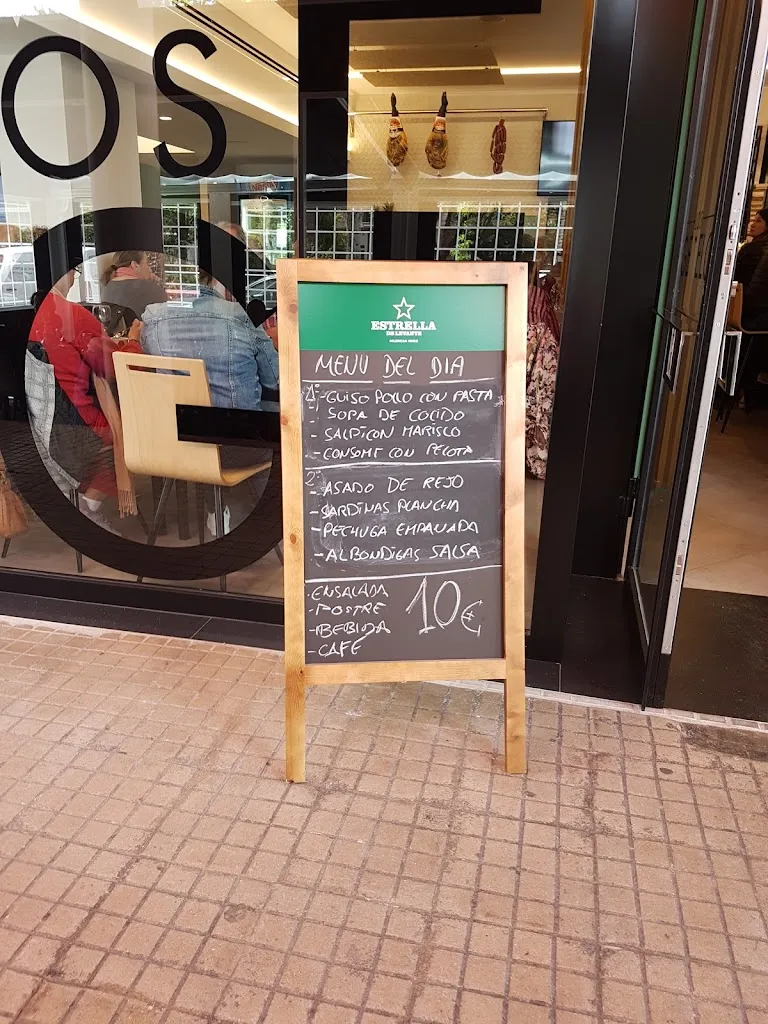 OS
ESTRELLA
DE LEVANTE
MENU DEL DIA
1º-GUISO POLLO CON PASTA
- SOPA DE COCIDO
- SALPICON MARISCO
- CONSOME CON PELOTA
2º
- ASADO DE REJO
- SARDINAS PLANCHA
- PECHUGA EMPANADA
- ALBONDIGAS SALSA
-ENSALADA
-POSTRE
-BEBIDA
-CAFE
10€